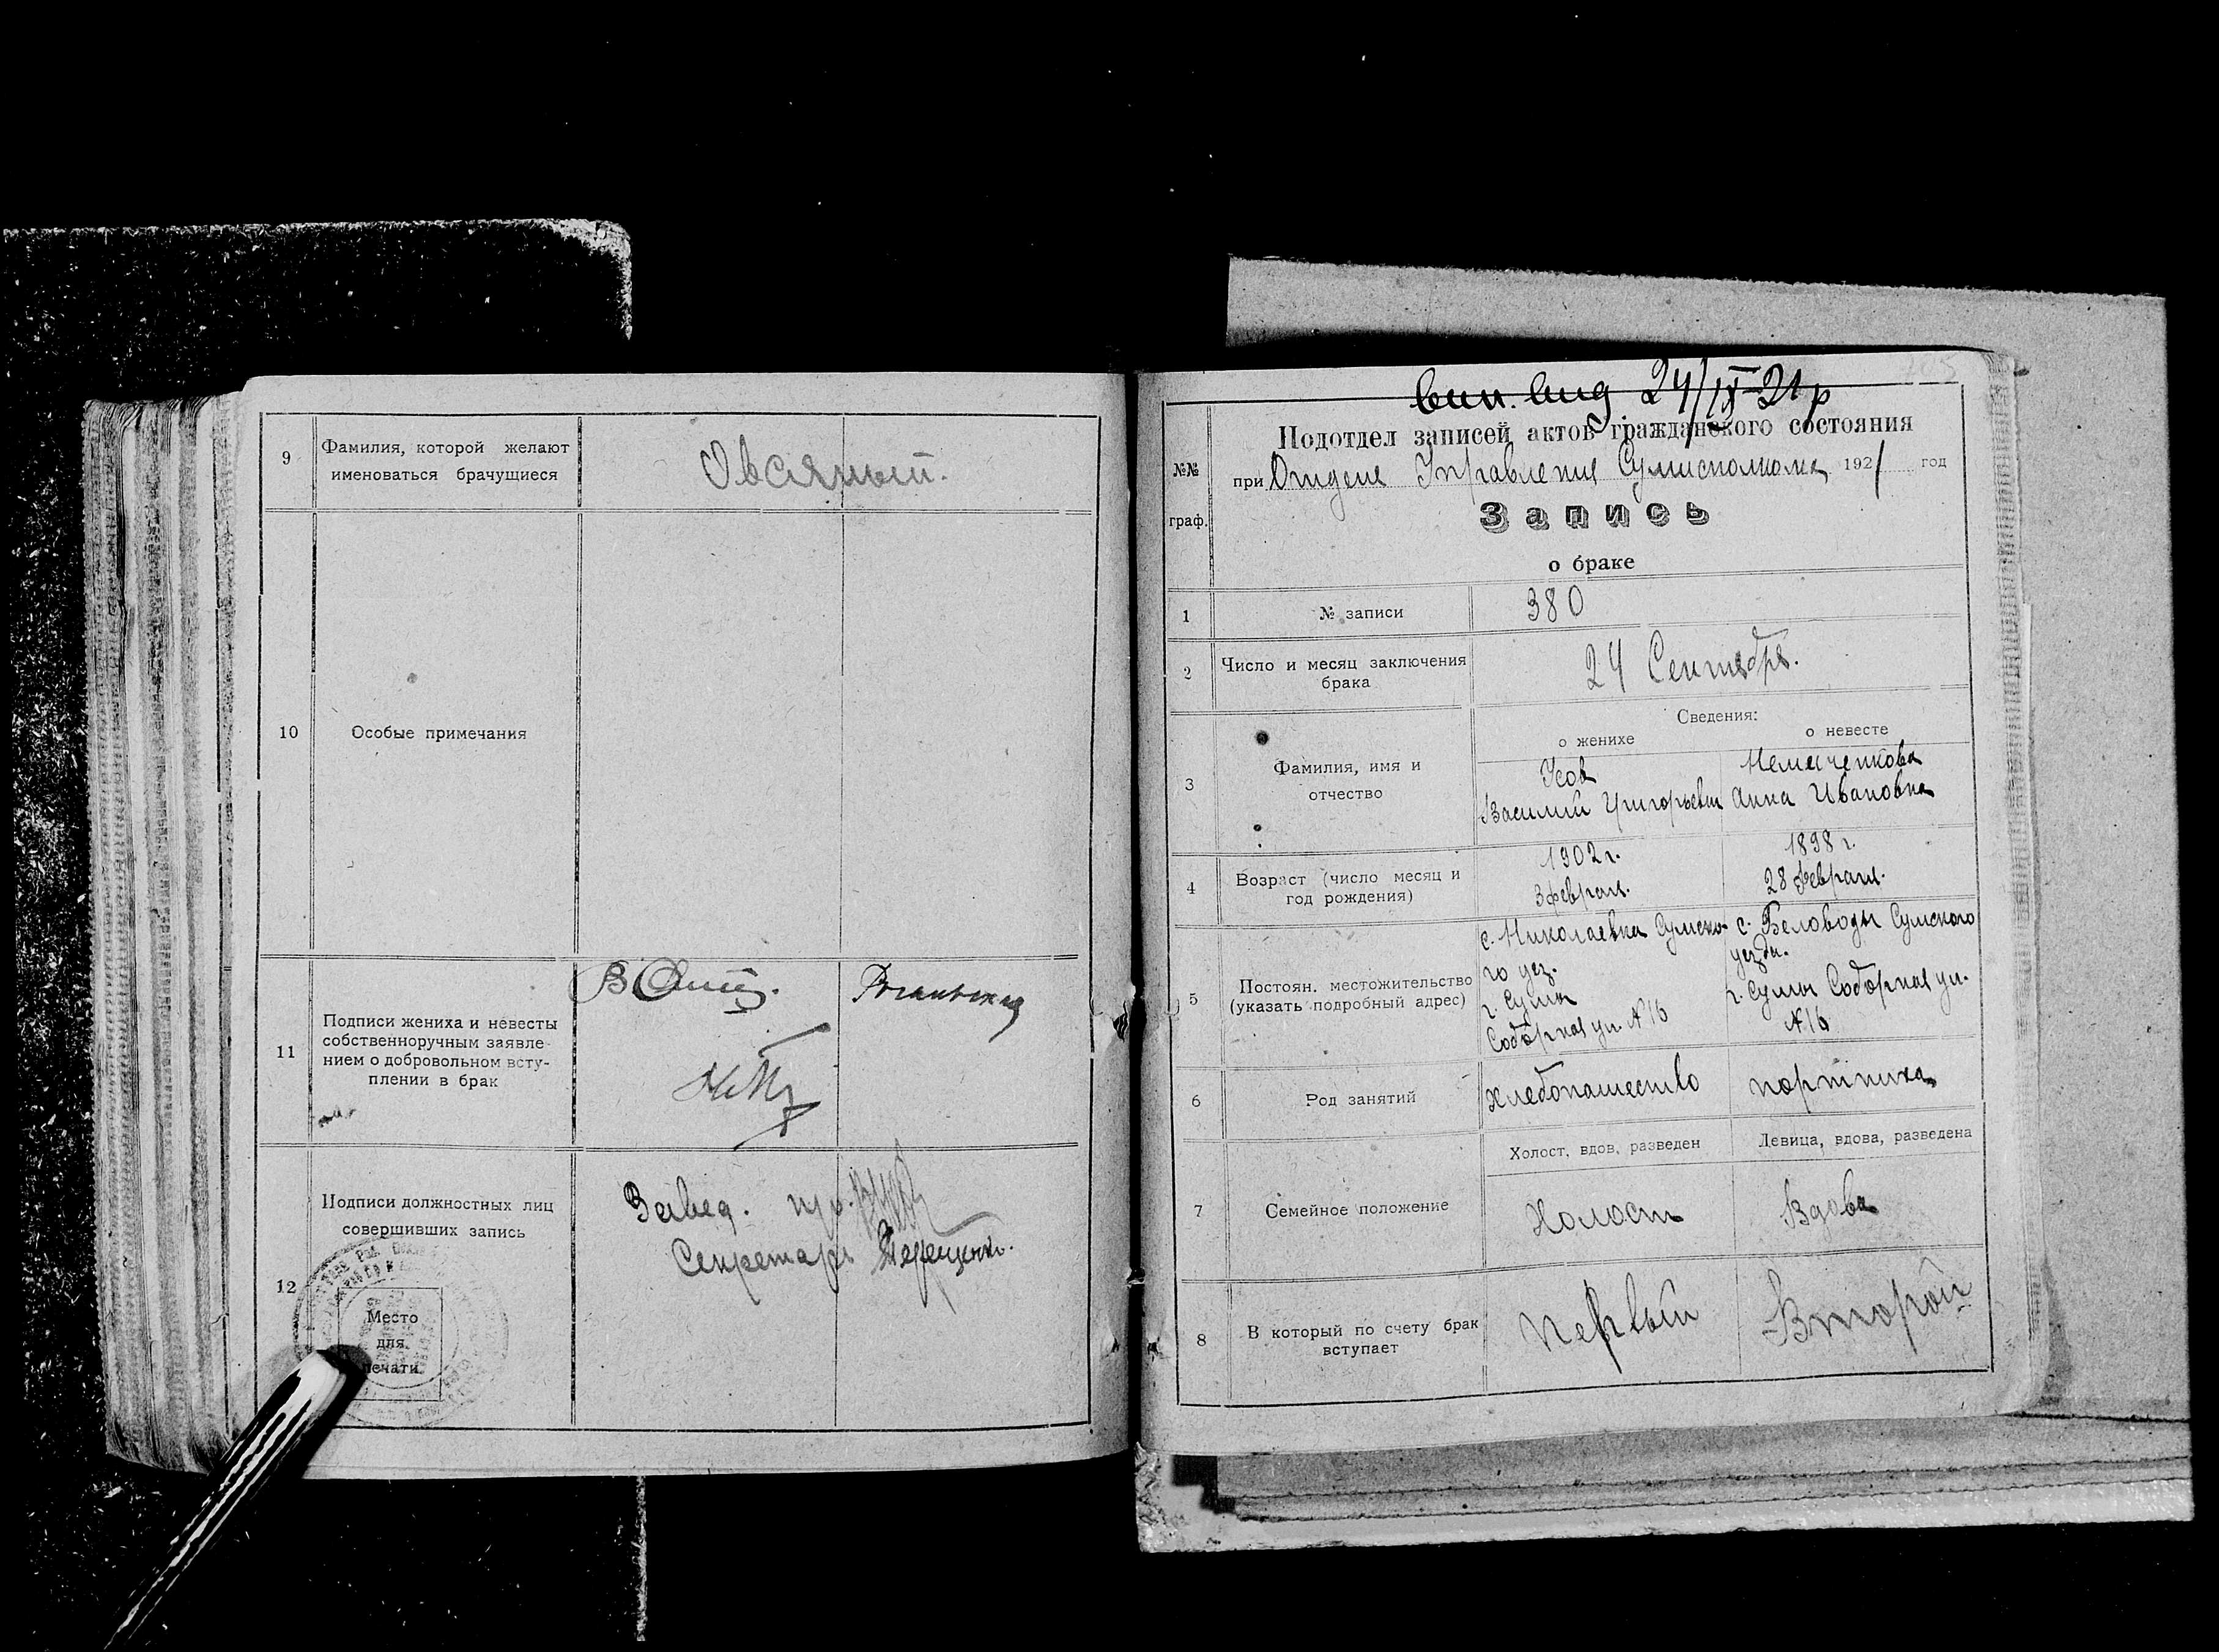 9
Фамилия, которой желают
именоваться брачущиеся
Овсяный.
10
Особые примечания
11
Подписи жениха и невесты
собственноручным заявле-
нием о добровольном всту-
плении в брак
12
Подписи должностных лиц
совершивших запись
Завед.
Секретарь Терещенко.
Место
для
печати
24/IX 21 р
Подотдел записей актов гражданского состояния
№№
граф.
при Отделе Управления Сумисполкома 1921 год
Запись
о браке
1
№ записи
380
2
Число и месяц заключения
брака
24 Сентября.
Сведения:
о женихе
о невесте
3
Фамилия, имя и
отчество
Усов
Василий Григорьевич
Анна Ивановна
4
Возраст (число месяц и
год рождения)
1902 г.
3 февраля.
1898 г.
28 февраля.
5
Постоян. местожительство
(указать подробный адрес)
с. Николаевка Сумско-
го уез.
г. Сумы
Соборная ул. №16
с. Беловоды Сумского
уезда.
г. Сумы Соборная ул.
№16
6
Род занятий
хлебопашество
портниха
7
Семейное положение
Холост, вдов, разведен
Девица, вдова, разведена
Холост
Вдова
8
В который по счету брак
вступает
Первый
Второй